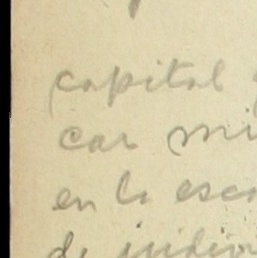 capital
car mi
en la esca
de indivi